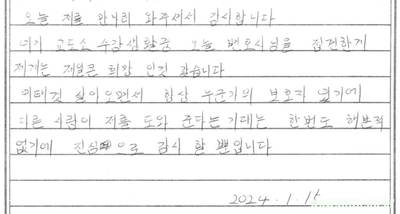 오늘 저를 만나러 와주셔서 감사합니다
여기 교도소 수감생활중 오늘 변호사님을 접견한게
제게는 제일큰 희망 인것 같습니다
여태껏 살아오면서 항상 누군가의 보호자 였기에
다른 사람이 저를 도와 준다는 기대는 한번도 해본적
없기에 진심으로 감사 할 뿐입니다
2024.1.15